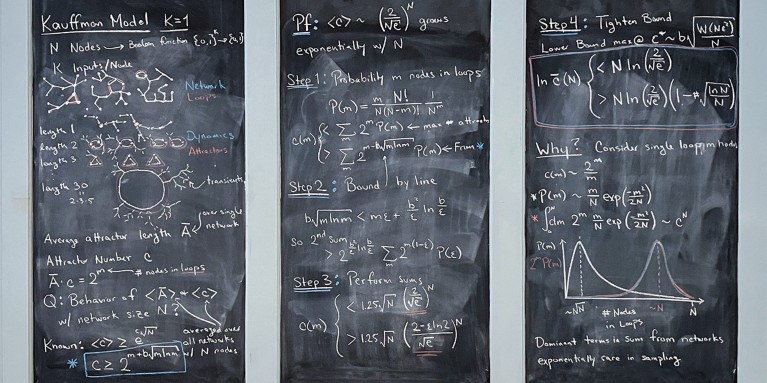 Kauffman Model K=1
N Nodes → Boolean function {0,1}^K → {0,1}
K Inputs/Node
Network
Loops
length 1
length 2
length 3
Dynamics
Attractors
length 30
2·3·5
transients
Average attractor length A̅
over single
network
Attractor Number c
A̅·c = 2^m ← # nodes in loops
Q: Behavior of <A̅> + <c>
w/ network size N?
averaged over
all networks
w/ N nodes
Known: <c> ≥ e^{c√N}
* c ≥ 2^{m+b√m ln m}
Pf: <c> ~ (2/√e)^N grows
exponentially w/ N
Step 1: Probability m nodes in loops
P(m) = m/N N!/(N-m)! 1/N^m
c(m) { < Σ_m 2^m P(m) ← max #
> Σ_m 2^{m-b√m ln m} P(m) ← From *
Step 2: Bound by line
b√m ln m < mε + b²/ε ln b/ε
So 2nd sum
> 2^{b²/ε ln b/ε} Σ_m 2^{m(1-ε)} P(ε)
Step 3: Perform sums
c(m) { < 1.25√N (2/√e)^N
> 1.25√N (2-ε ln 2/√e)^N
Step 4: Tighten Bound
Lower Bound max @ ε* ~ b√(W(Ne²)/N)
ln c̅(N) { < N ln(2/√e)
> N ln(2/√e)(1-#√(ln N/N))
Why? Consider single loop, m nodes
c(m) ~ 2^m/m
* P(m) ~ m/N exp(-m²/2N)
* ∫₀^N dm 2^m m/N exp(-m²/2N) ~ c^N
P(m)
2^m P(m)
~√N
# Nodes
in Loops
~N
N
Dominant terms in sum from networks
exponentially rare in sampling